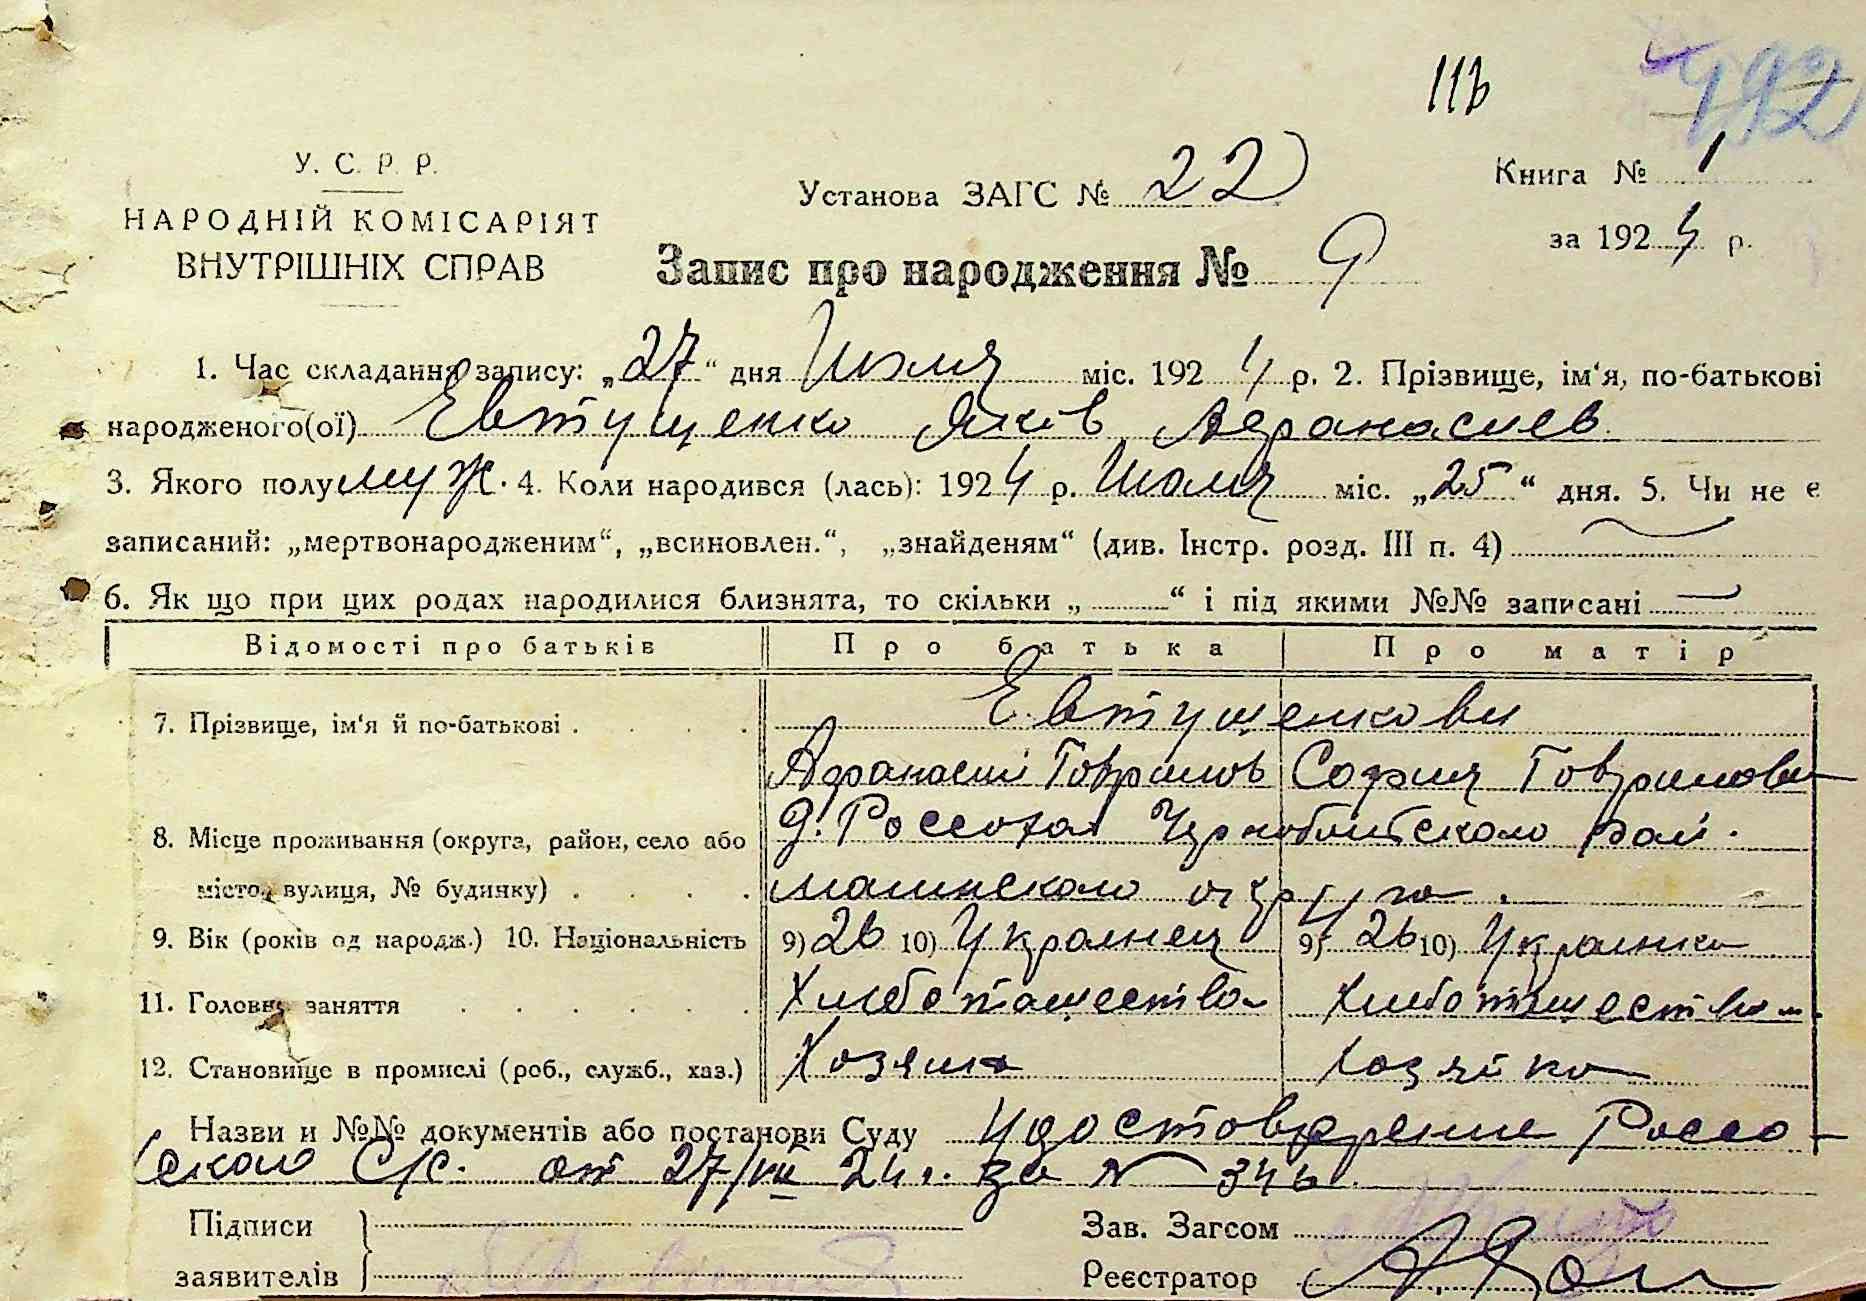 116
992
У. С. Р. Р.
НАРОДНІЙ КОМІСАРІЯТ
ВНУТРІШНІХ СПРАВ
Установа ЗАГС № 22
Книга № 1
за 1924 р.
Запис про народження № 9
1. Час складання запису: „27“ дня Июля міс. 1924 р. 2. Прізвище, ім‘я, по-батькові
народженого(ої) Евтущенко Яків Афанасиев.
3. Якого полу муж. 4. Коли народився (лась): 1924 р. Июля міс. „25“ дня. 5. Чи не є
записаний: „мертвонародженим“, „всиновлен.“, „знайденям“ (див. Інстр. розд. III п. 4)
6. Як що при цих родах народилися близнята, то скільки „ “ і під якими №№ записані —
Відомості про батьків Про батька Про матір
7. Прізвище, ім‘я й по-батькові . . . . Евтушенкови
Афанасий Гаврилов София Гаврилова
8. Місце проживання (округа, район, село або д. Россоха Чернобыльского рай.
місто, вулиця, № будинку) . . . . малинского округа.
9. Вік (років од народж.) 10. Національність 9) 26 10) Украинец 9) 26 10) Украинка
11. Головне заняття . . . . . . Хлебопашество Хлебопашество
12. Становище в промислі (роб., служб., хаз.) Хозяин Хозяйка
Назви и №№ документів або постанови Суду Удостоверение Россо-
ского С/с. от 27/VII 24 г. за № 346.
Підписи
заявителів
Зав. Загсом
Реєстратор